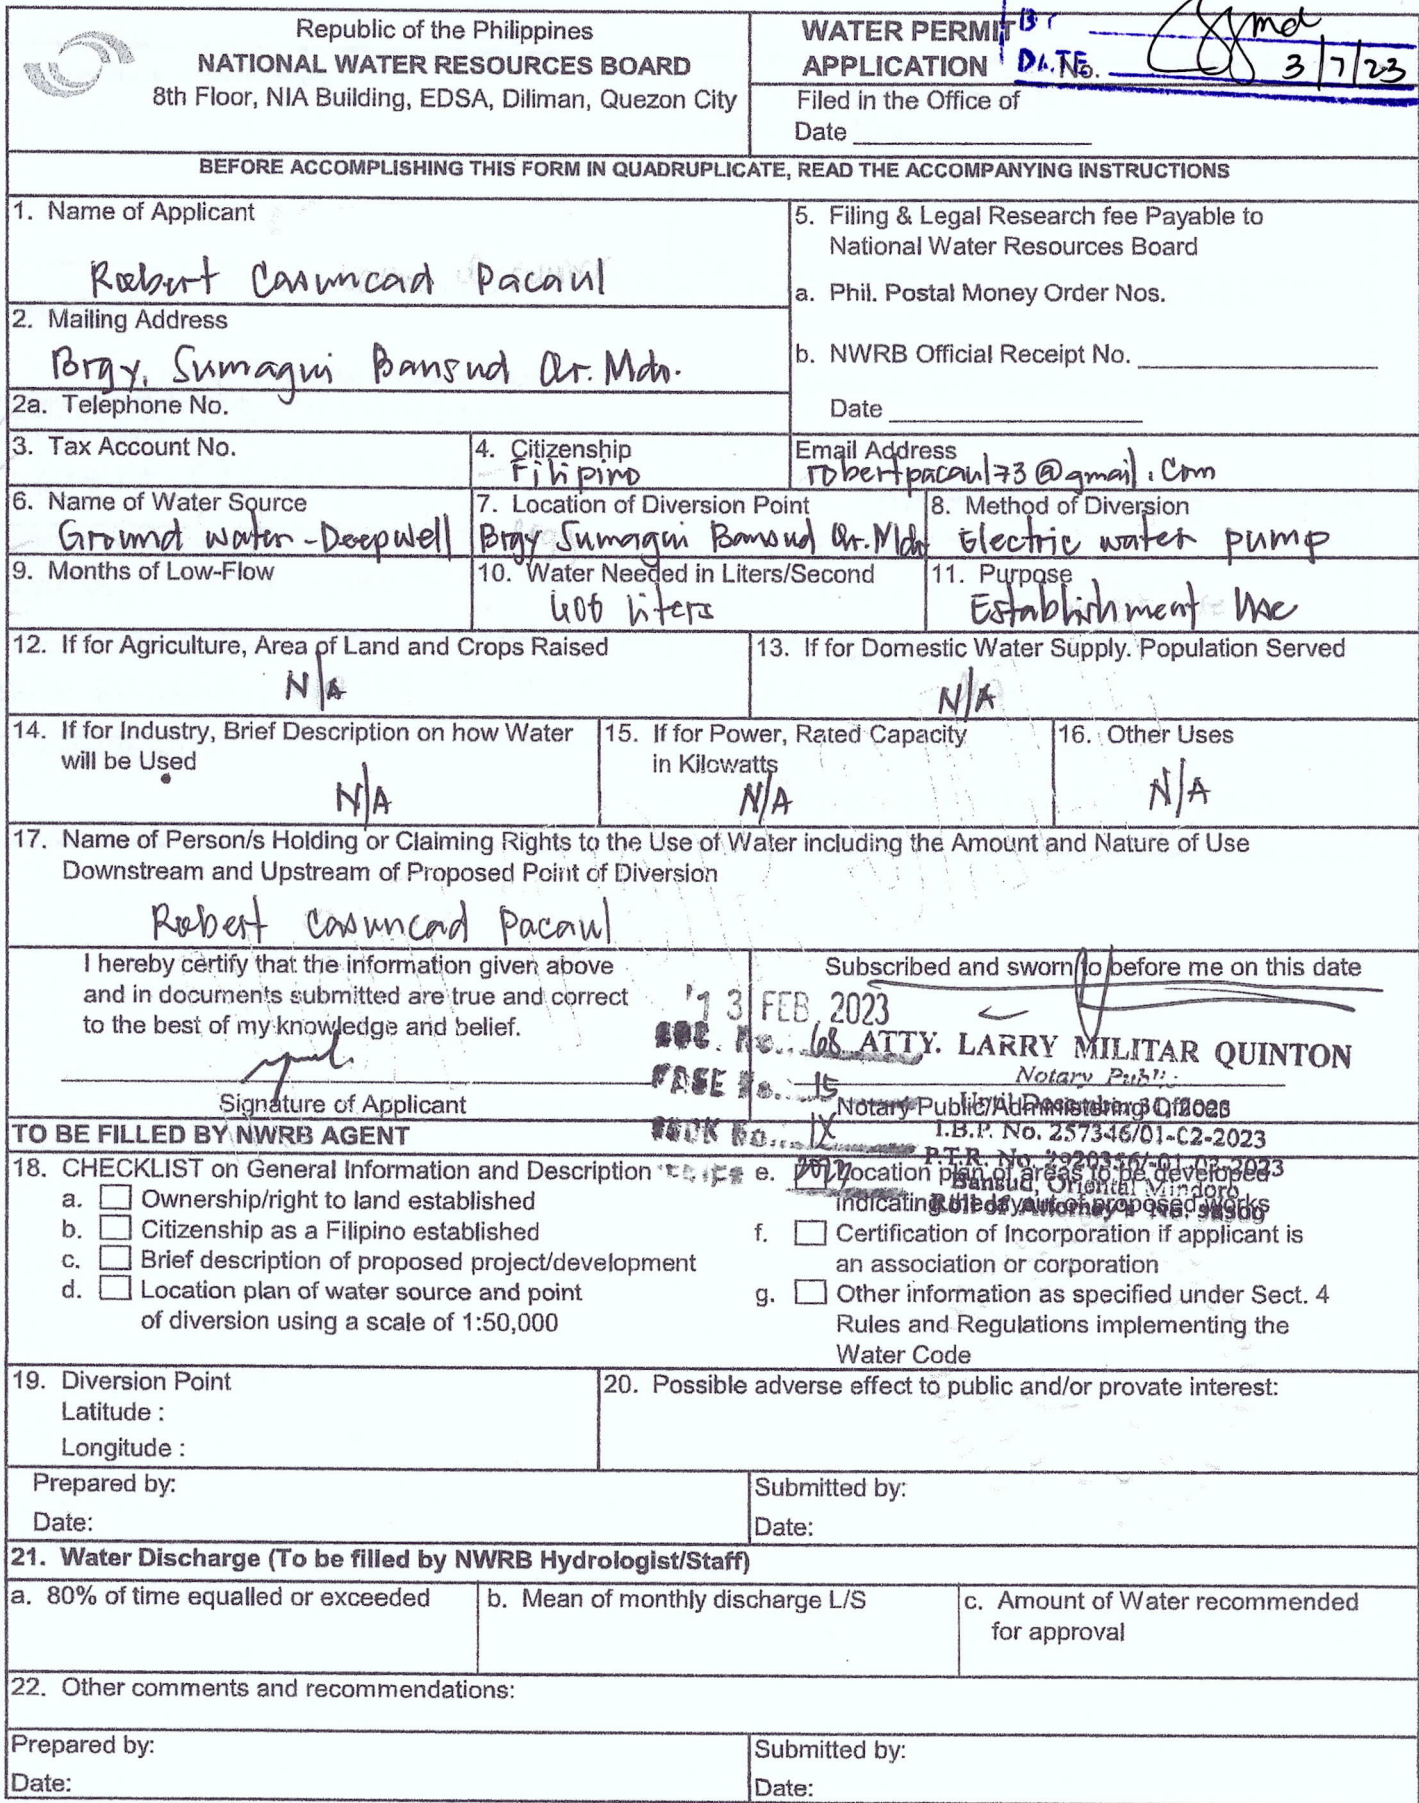 Republic of the Philippines
NATIONAL WATER RESOURCES BOARD
8th Floor, NIA Building, EDSA, Diliman, Quezon City
WATER PERMIT
APPLICATION No.
BY
DATE 3/7/23
Filed in the Office of
Date
BEFORE ACCOMPLISHING THIS FORM IN QUADRUPLICATE, READ THE ACCOMPANYING INSTRUCTIONS
1. Name of Applicant
Robert Casuncad Pacaul
2. Mailing Address
Brgy. Sumagui Bansud Or. Mdo.
2a. Telephone No.
5. Filing & Legal Research fee Payable to
National Water Resources Board
a. Phil. Postal Money Order Nos.
b. NWRB Official Receipt No.
Date
3. Tax Account No.
4. Citizenship
Filipino
Email Address
robertpacaul73@gmail.com
6. Name of Water Source
Ground water-Deepwell
7. Location of Diversion Point
Brgy Sumagui Bansud Or. Mdo
8. Method of Diversion
Electric water pump
9. Months of Low-Flow
10. Water Needed in Liters/Second
liters
11. Purpose
Establishment Use
12. If for Agriculture, Area of Land and Crops Raised
N/A
13. If for Domestic Water Supply. Population Served
N/A
14. If for Industry, Brief Description on how Water
will be Used
N/A
15. If for Power, Rated Capacity
in Kilowatts
N/A
16. Other Uses
N/A
17. Name of Person/s Holding or Claiming Rights to the Use of Water including the Amount and Nature of Use
Downstream and Upstream of Proposed Point of Diversion
Robert Casuncad Pacaul
I hereby certify that the information given above
and in documents submitted are true and correct
to the best of my knowledge and belief.
Signature of Applicant
Subscribed and sworn to before me on this date
13 FEB 2023
DOC. No. 68
PAGE No. 15
BOOK No. IX
ATTY. LARRY MILITAR QUINTON
Notary Public
Notary Public/Administering Officer
I.B.P. No. 257346/01-02-2023
Bansud, Oriental Mindoro
TO BE FILLED BY NWRB AGENT
18. CHECKLIST on General Information and Description
a. Ownership/right to land established
b. Citizenship as a Filipino established
c. Brief description of proposed project/development
d. Location plan of water source and point
of diversion using a scale of 1:50,000
e. location plan of areas to be developed
indicating the layout of proposed works
f. Certification of Incorporation if applicant is
an association or corporation
g. Other information as specified under Sect. 4
Rules and Regulations implementing the
Water Code
19. Diversion Point
Latitude :
Longitude :
20. Possible adverse effect to public and/or provate interest:
Prepared by:
Date:
Submitted by:
Date:
21. Water Discharge (To be filled by NWRB Hydrologist/Staff)
a. 80% of time equalled or exceeded
b. Mean of monthly discharge L/S
c. Amount of Water recommended
for approval
22. Other comments and recommendations:
Prepared by:
Date:
Submitted by:
Date: